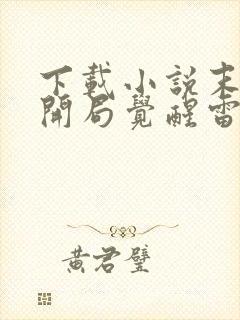 下載小説末
開局覺醒雷
黄君璧